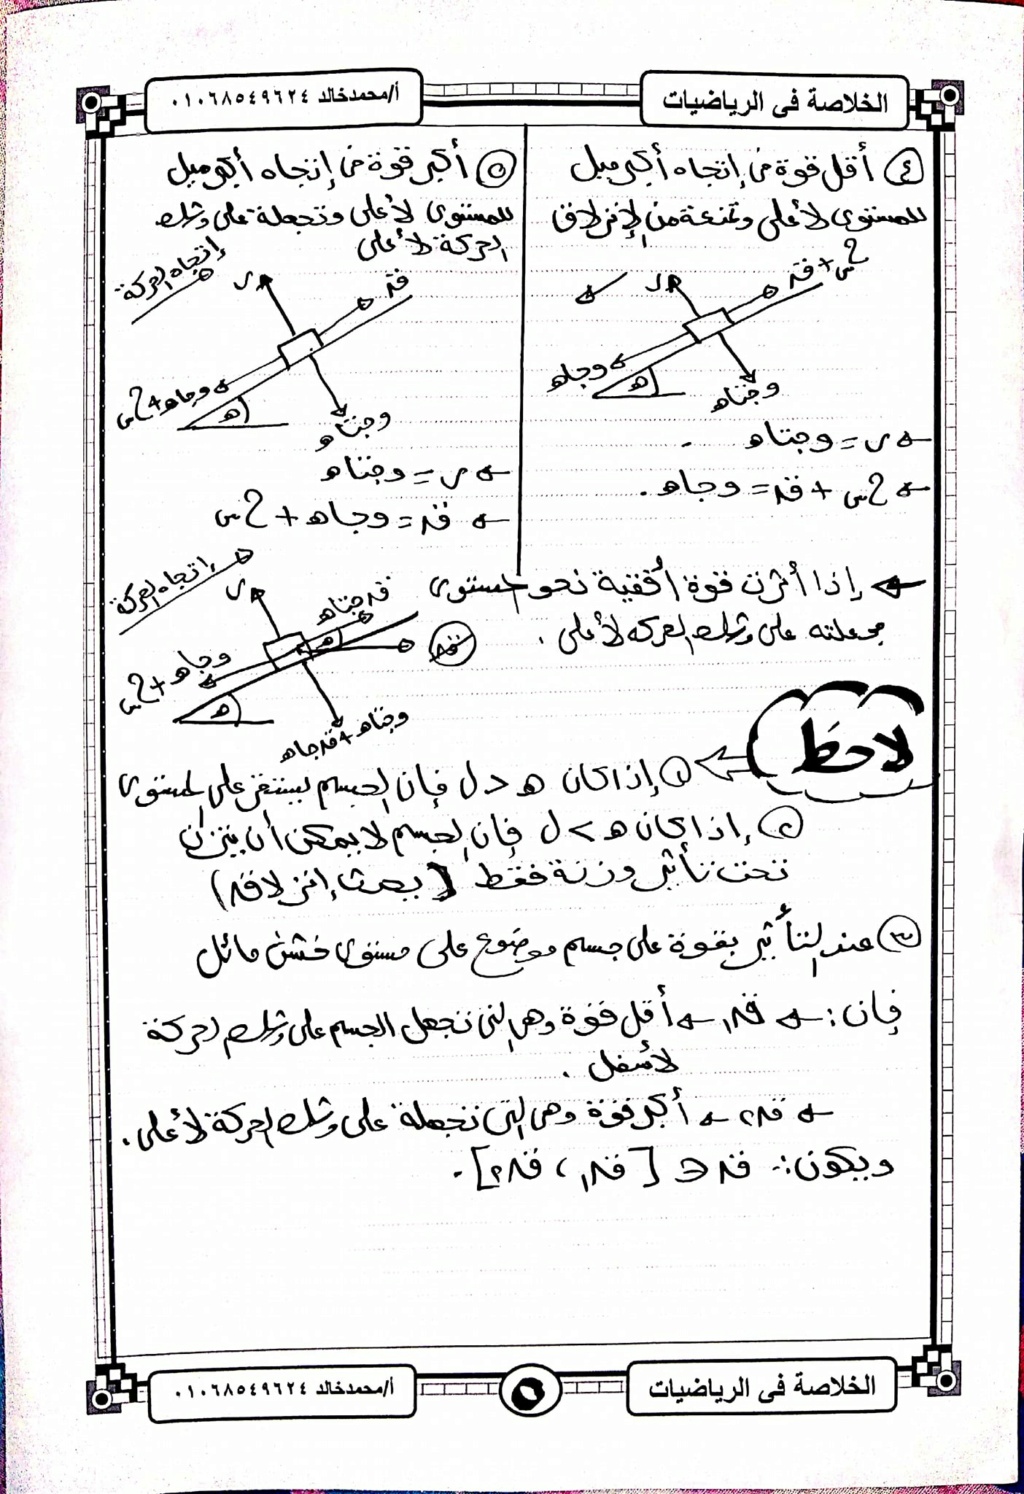 الخلاصة فى الرياضيات
أ/محمدخالد ٠١٠٦٨٥٤٩٦٢٤
٤ أقل قوة فى إتجاه أكبر ميل
للمستوى لأعلى وتمنعة من الإنزلاق
قہ + ح س
ر
وجاھ
ھ
وجتاھ
← ر = وجتاھ
← ح س + قہ = وجاھ .
٥ أكبر قوة فى إتجاه أكبر ميل
للمستوى لأعلى وتجعلة على وشك
الحركة لأعلى
إتجاه الحركة
ر
قہ
وجاھ + ح س
ھ
وجتاھ
← ر = وجتاھ
← قہ = وجاھ + ح س
← إذا أثرت قوة أفقية نحو المستوى
فجعلته على وشك الحركه لأعلى .
إتجاه الحركة
ر
قہ جتاھ
ھ
قہ
وجاھ + ح س
ھ
وجتاھ + قہ جاھ
لاحظ
١ إذا كان ھ > ل فإن الجسم يستقر على المستوى
٢ إذا كان ھ < ل فإن الجسم لا يمكن أن يتزن
تحت تأثير وزنة فقط (يحدث إنزلاقہ)
٣ عند التأثير بقوة على جسم موضوع على مستوى خشن مائل
فإن : ← قہ١ ← أقل قوة وهى التى تجعل الجسم على وشك الحركة
لأسفل .
← قہ٢ ← أكبر قوة وهى التى تجعلة على وشك الحركة لأعلى .
ويكون :- قہ ∈ [قہ١ ، قہ٢] .
الخلاصة فى الرياضيات
أ/محمدخالد ٠١٠٦٨٥٤٩٦٢٤